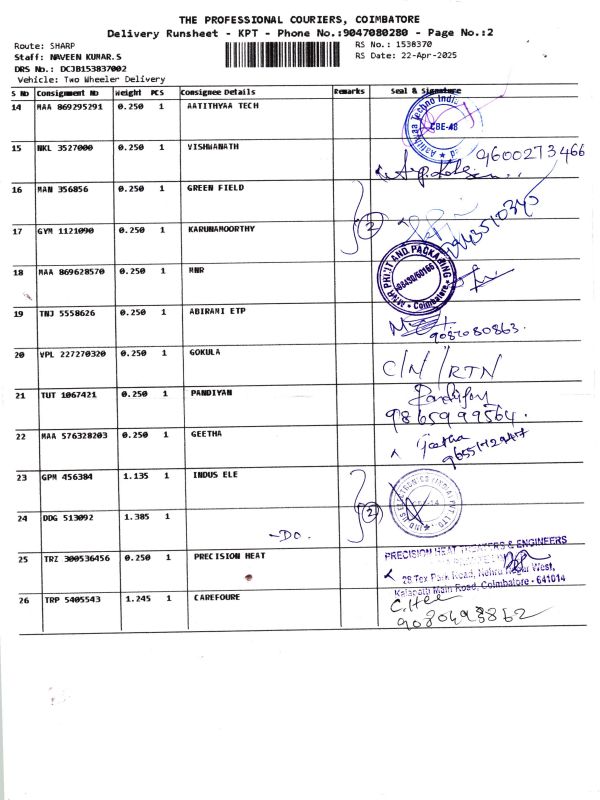 THE PROFESSIONAL COURIERS, COIMBATORE
Delivery Runsheet - KPT - Phone No.:9047080280 - Page No.:2
Route: SHARP
RS No.: 1538370
Staff: NAVEEN KUMAR.S
RS Date: 22-Apr-2025
DRS No.: DCJB153837002
Vehicle: Two Wheeler Delivery
S No Consignment No Weight PCS Consignee Details Remarks Seal & Signature
14 MAA 869295291 0.250 1 AATITHYAA TECH
CBE-48
15 NKL 3527000 0.250 1 VISHWANATH
9600273466
16 MAN 356856 0.250 1 GREEN FIELD
2
17 GYM 1121090 0.250 1 KARUNAMOORTHY
18 MAA 869628570 0.250 1 MNR
PRINT AND PACKAGING
Coimbatore
19 TNJ 5558626 0.250 1 ABIRAMI ETP
9087080863.
20 VPL 227270320 0.250 1 GOKULA
C/N /RTN
21 TUT 1067421 0.250 1 PANDIYAN
9865999564.
22 MAA 576328203 0.250 1 GEETHA
Geetha
23 GPM 456384 1.135 1 INDUS ELE
2
24 DDG 513092 1.385 1
-DO.
25 TRZ 300536456 0.250 1 PRECISION HEAT
PRECISION HEAT HEATERS & ENGINEERS
28 Tex Park Road, Nehru Nagar West,
Kalapatti Main Road, Coimbatore - 641014
26 TRP 5405543 1.245 1 CAREFOURE
9080493862